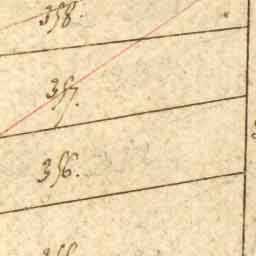 358.
357.
356.